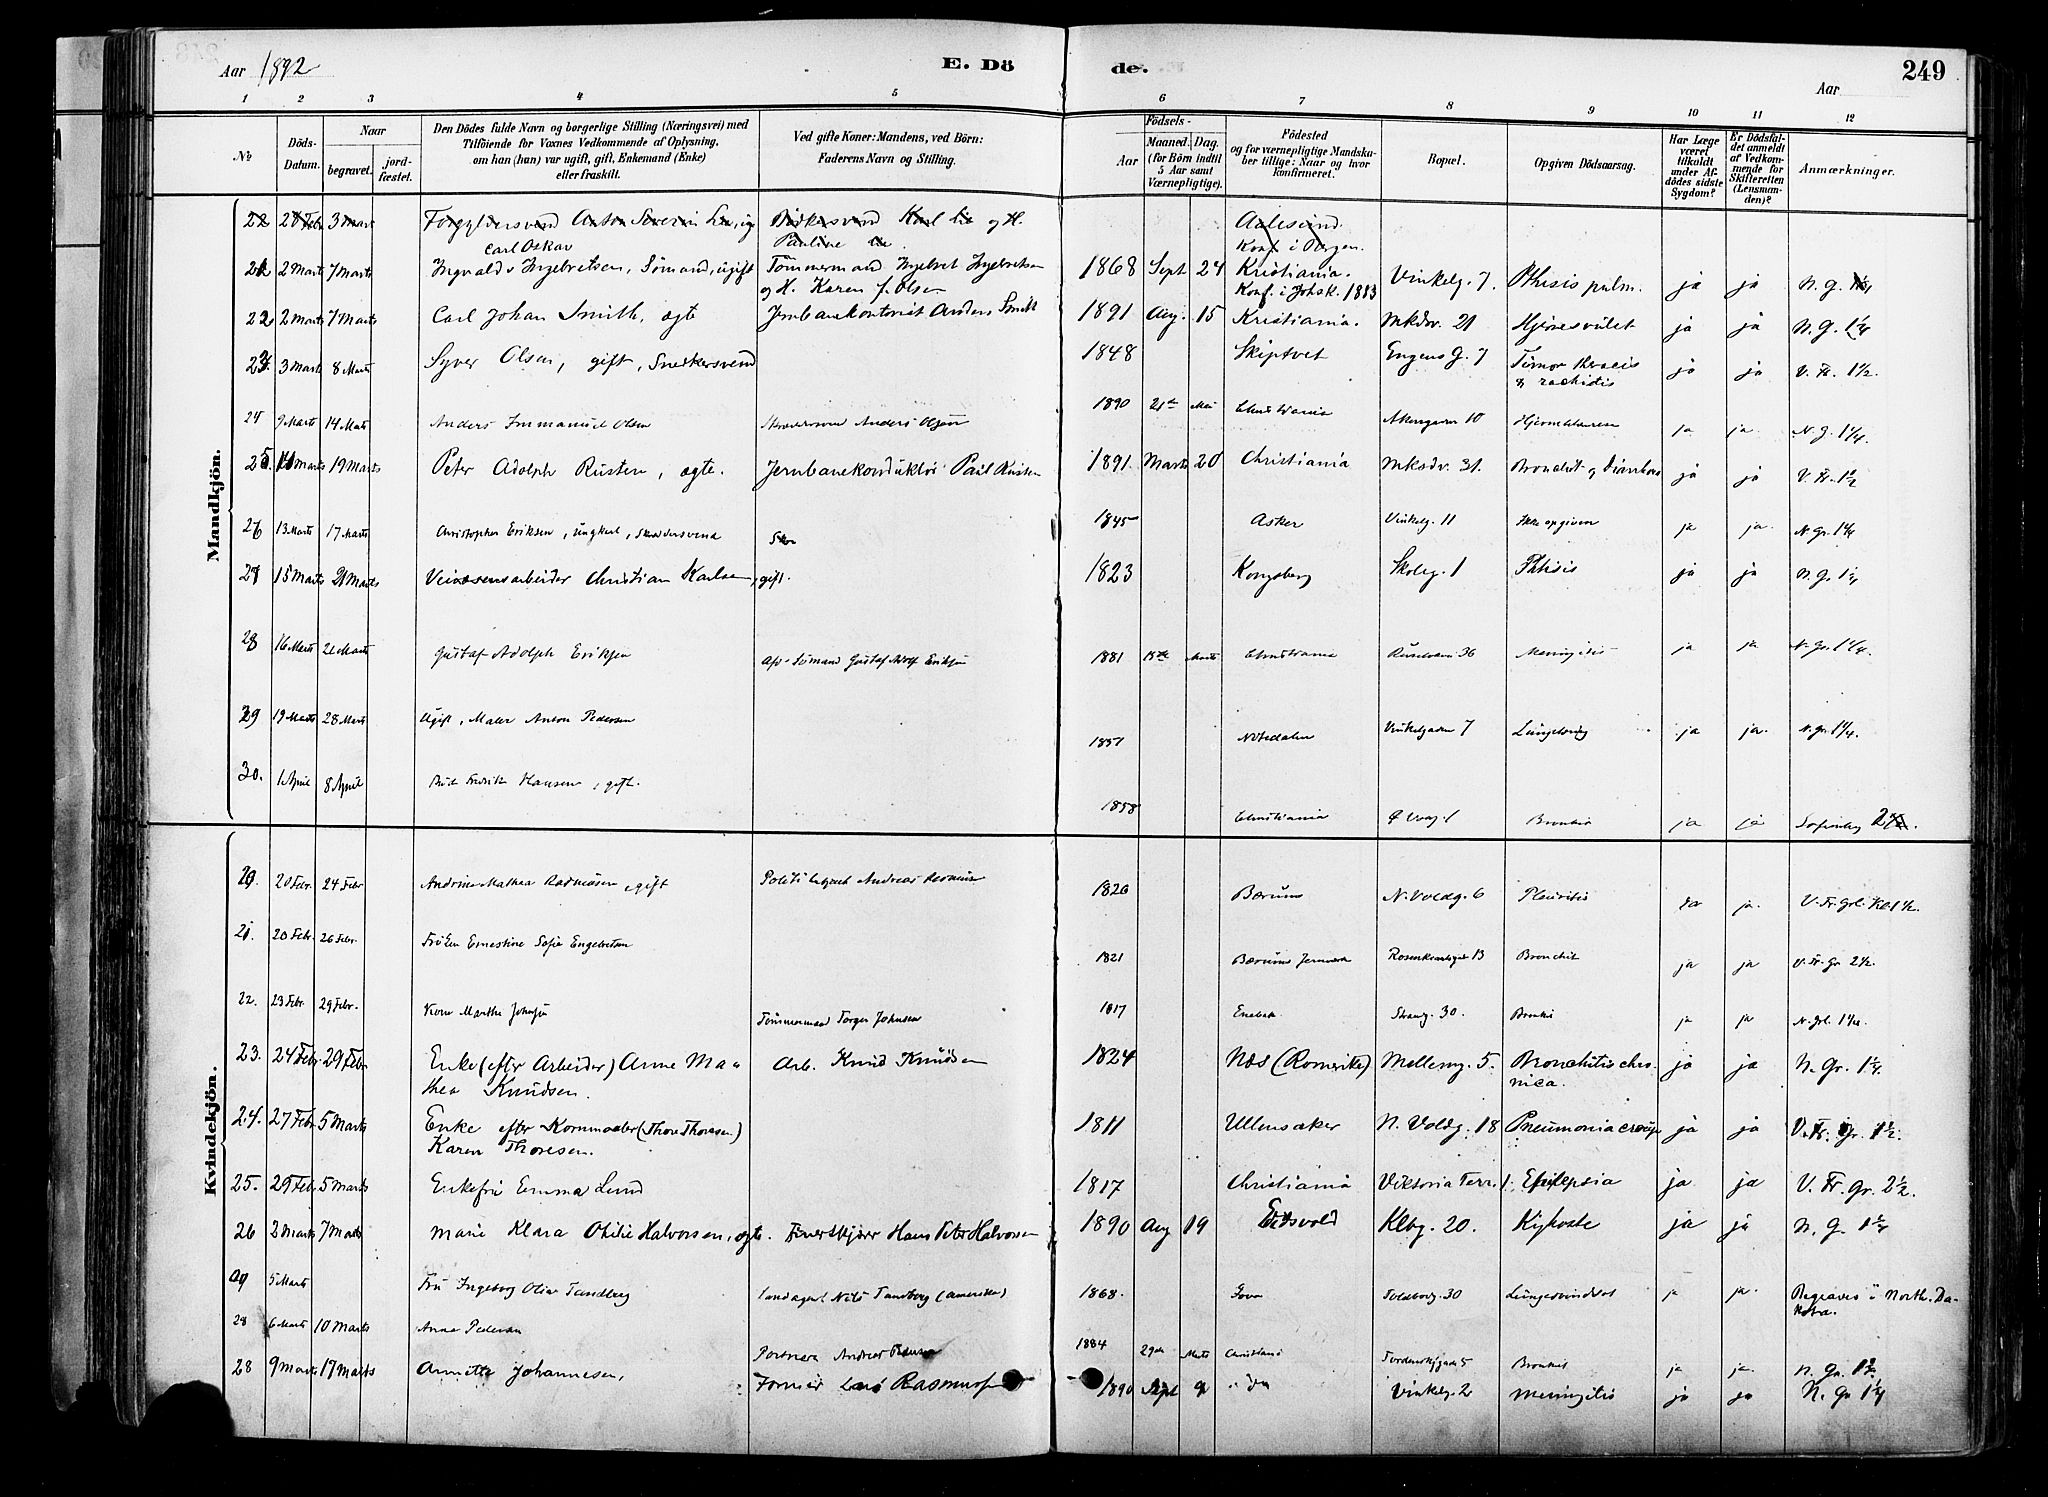 Aar 1892
E. Dö
de.
249
Aar
1 2 3 4 5 6 7 8 9 10 11 12
No
Döds-Datum.
Naar
begravet.
jord-fæstet.
Den Dödes fulde Navn og borgerlige Stilling (Næringsvei) med
Tilföiende for Voxnes Vedkommende af Oplysning,
om han (hun) var ugift, gift, Enkemand (Enke)
eller fraskilt.
Ved gifte Koner: Mandens, ved Börn:
Faderens Navn og Stilling.
Födsels-
Aar
Maaned. Dag.
(for Börn indtil
5 Aar samt
Værnepligtige).
Födested
og for værnepligtige Mandska-
ber tillige: Naar og hvor
konfirmeret.
Bopæl.
Opgiven Dödsaarsag.
Har Læge
været
tilkaldt
under Af-
dödes sidste
Sygdom?
Er Dödsfal-
det anmeldt
af Vedkom-
mende for
Skifteretten
(Lensman-
den)?
Anmærkninger.
Mandkjön.
22 28 Febr 3 Mart Forgyldersvend Anton Severin Lie, ug Bödkersvend Karl Lie og H. Aalesund.
Carl Oskar Pauline Konf. i Bergen.
21 2 Marts 7 Marts Ingvald Ingebretsen, Sömand, ugift Tömmermand Ingebret Ingebretsen 1868 Sept 24 Kristiania. Vinkelg. 7. Pthisis pulm. ja ja N. g.
og H. Karen f. Olsen Konf. i Johsk. 1883
22 2 Marts 7 Marts Carl Johan Smith, ægte Jernbanekontorist Anders Smith 1891 Aug. 15 Kristiania. Mkdv. 21 Hjernesvulst ja ja N. G. 1 1/4
23 3 Mart 8 Marts Syver Olsen, gift, Snedkersvend 1848 Skiptvet Engens G. 7 Tumor ja ja V. Fr. 1 1/2.
24 9 Marts 14 Marts Anders Immanuel Olsen Anders Olsen 1890 21de Mai Christiania Akersgaden 10 ja ja. N. g. 1 1/4.
25 11 Marts 19 Marts Peter Adolph Rusten, ægte. Jernbanekonduktör Paul Rusten 1891. Marts 20 Christiania Mksdv. 31. Bronchit. og Diarrhoea ja ja V. Fr. 1 1/2
26 13 Marts 17 Marts Christopher Eriksen, ungkarl, Skræddersvend 1845 Asker Vinkelg. 11 Ikke opgiven ja ja. N. Gr. 1 1/4
27 15 Marts 21 Marts Veivæsensarbeider Christian Karlsen, gift. 1823 Kongsberg Skoleg. 1 Phtisis ja ja N. G. 1 1/4
28 16 Marts 21 Marts Gustaf Adolph Eriksen Afd. Sömand Gustaf Adolf Eriksen 1881 15de Marts Christiania 36 Meningitis ja ja N. Gr. 1 1/4.
29 19 Marts 28 Marts Ugift, Maler Anton Pedersen 1851 Vinkelgaden 7 ja ja. N. Gr. 1 1/4.
30. 1 April 8 April Fredrik Hansen, gift. 1858 Christiania Bronkit ja ja
Kvindekjön.
20. 20 Febr. 24 Febr Andrine Mathea Rasmusen, gift Politibetjent Andreas Rasmusen 1826 Bærum N. Voldg. 6 Pleuritis ja ja. V. Fr. Grl. 1 1/2.
21. 20 Febr. 26 Febr. Fröken Ernestine Sofie Engebretsen 1821 Bærums Jernværk 13 Bronchit ja ja V. Fr. Gr 2 1/2.
22. 23 Febr. 29 Febr. Kone Marthe Johnsen Tömmermand Torger Johnsen 1817 Enebak Strandg. 30. Bronkit ja ja N. Grl. 1 1/4.
23. 24 Febr 29 Febr Enke (efter Arbeider) Anne Ma= Arb. Knud Knudsen 1824 Næs (Romerike) Melleng. 5. Bronchitis chro- ja ja N. Gr. 1 1/4.
thea Knudsen. nica.
24. 27 Febr 5 Marts Enke efter Kornmaaler (Thore Thoresen) 1811 Ullensaker N. Voldg. 18 Pneumonia croup. ja ja V. Fr. Gr. 1 1/2.
Karen Thoresen.
25. 29 Febr 5 Marts Enkefru Emma Lund 1817 Christiania Viktoria Terr. 1. Epilepsia ja ja V. Fr. Gr. 2 1/2.
26 2 Marts 7 Marts Marie Klara Othilie Halvorsen, ægte. Hans Peter Halvorsen 1890 Aug 19 Eidsvold Klbg. 20. Kighoste ja ja N. G. 1 1/4
5 Marts Fru Ingeborg Olive Tandberg Landagent Nils Tandberg (Amerika) 1868. Toldbodg. 30 ja ja. Begraves i North. Da-
kota.
28 6 Marts 10 Marts Anna Pedersen Andreas 1884 29de Marts Christiania Bronkit ja ja. N. Gr.
28 9 Marts 17 Marts Annette Johannesen, Lars Rasmus 1890 Sept 9 Vinkelg. 2 Meningitis ja ja N. Gr 1 1/4